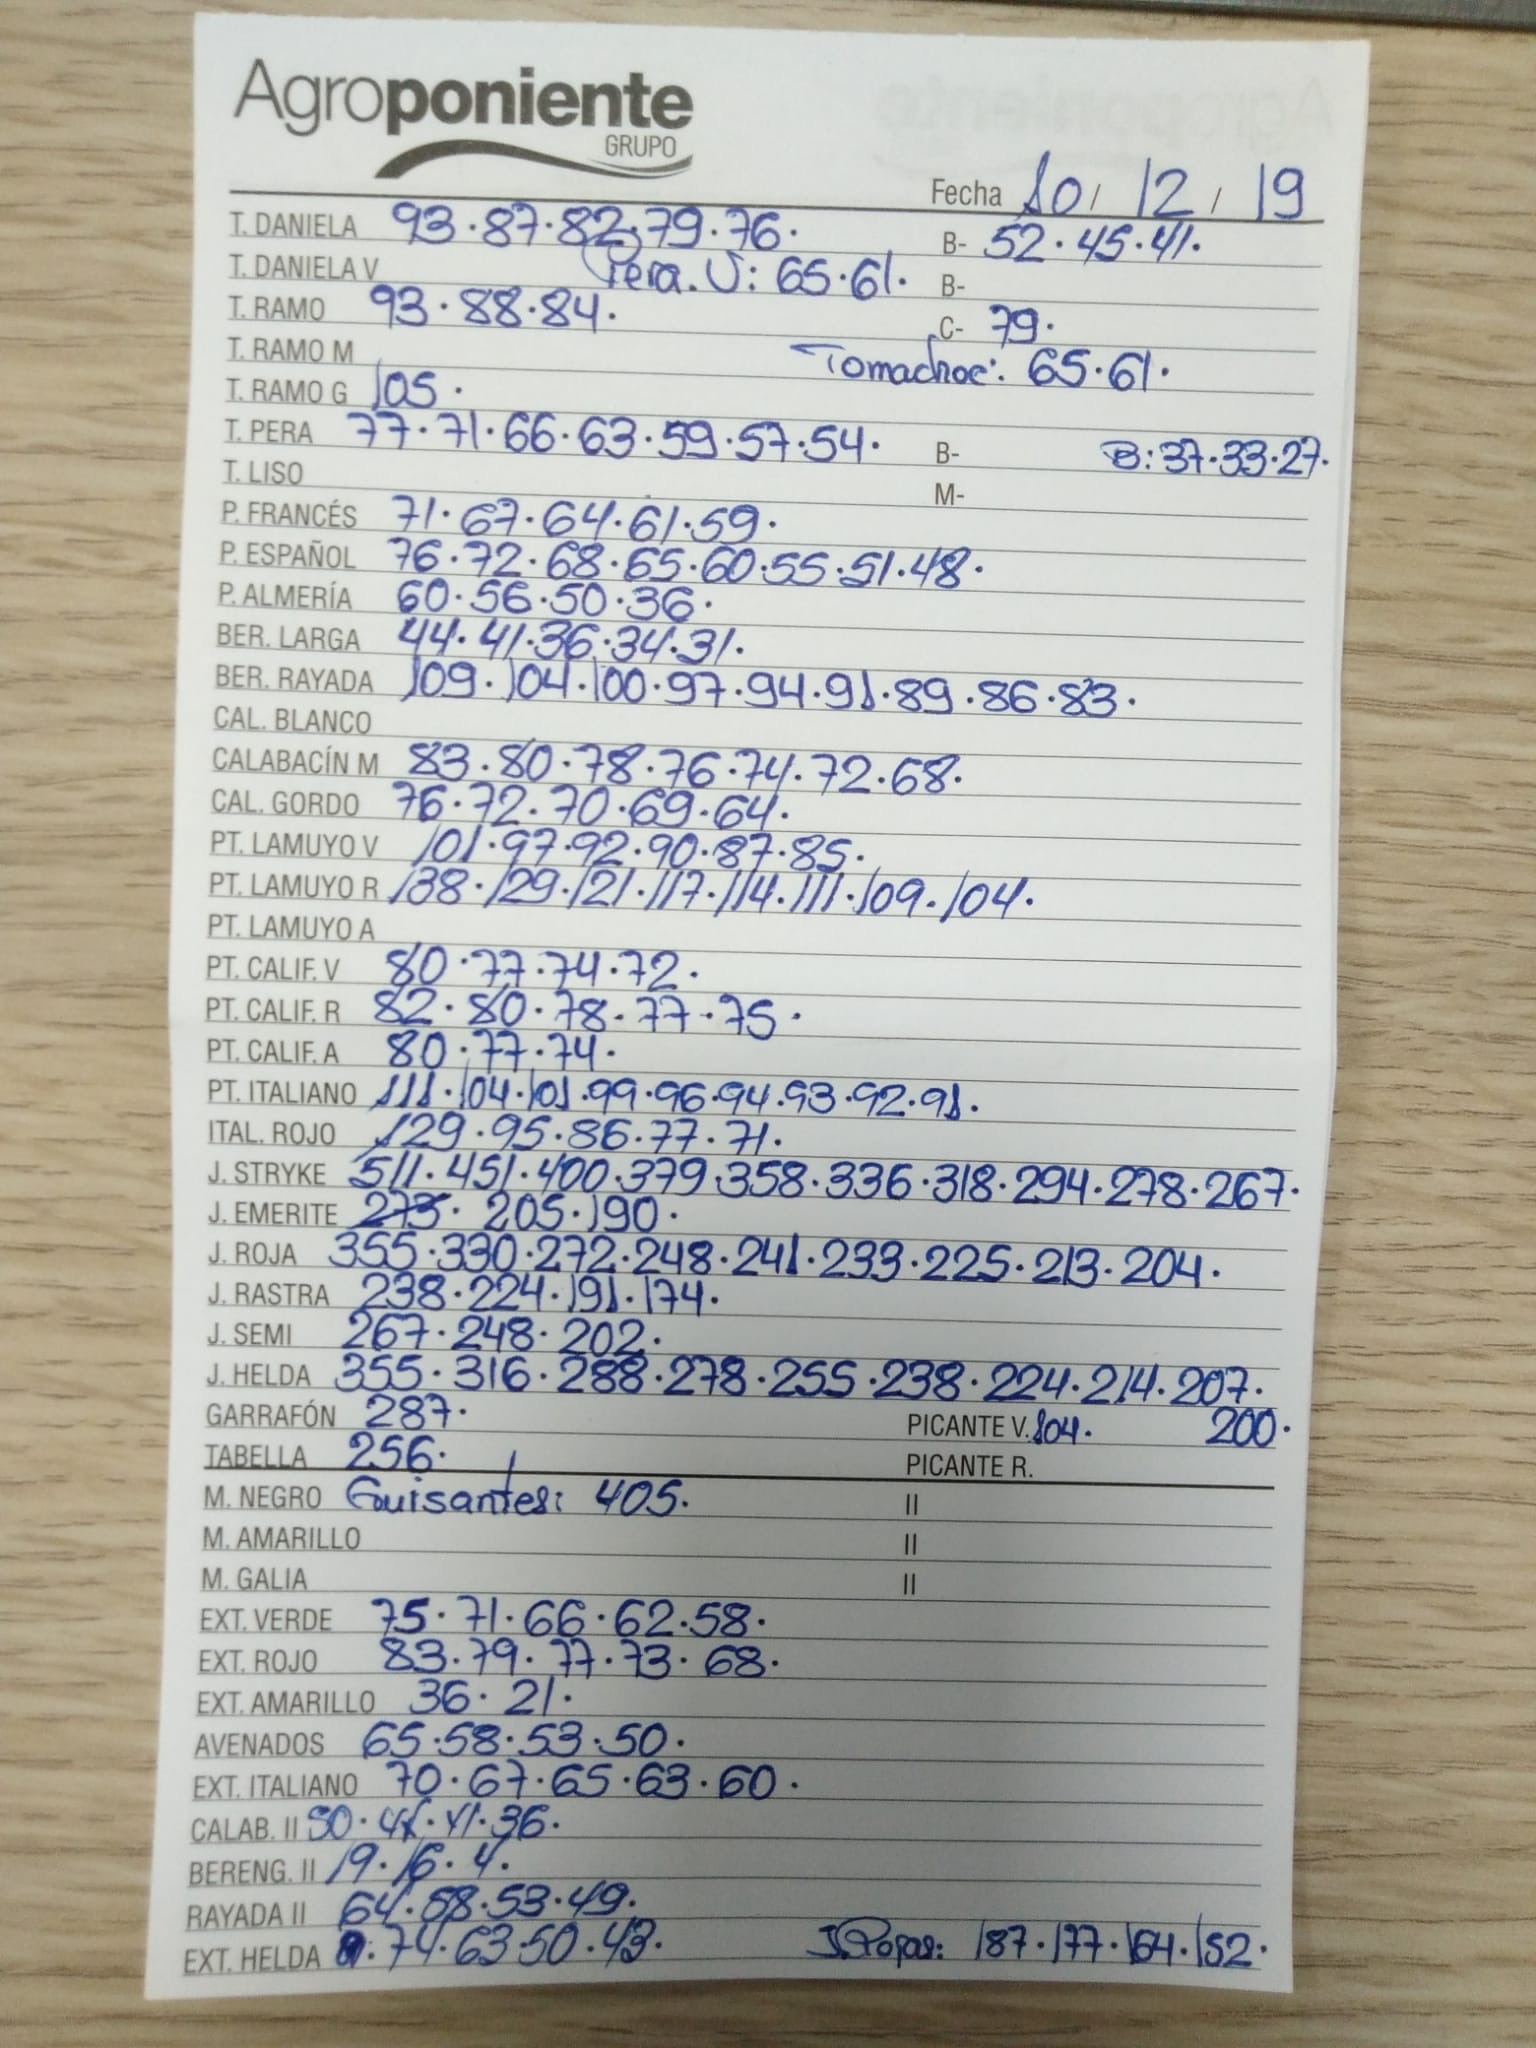 Agroponiente
GRUPO
Fecha 10 / 12 / 19
T. DANIELA 93.87.82.79.76. B- 52.45.41.
T. DANIELA V Pera. V: 65.61. B-
T. RAMO 93.88.84. C- 79.
T. RAMO M Tomachoc: 65.61.
T. RAMO G 105.
T. PERA 77.71.66.63.59.57.54. B- B: 37.33.27.
T. LISO M-
P. FRANCÉS 71.67.64.61.59.
P. ESPAÑOL 76.72.68.65.60.55.51.48.
P. ALMERÍA 60.56.50.36.
BER. LARGA 44.41.36.34.31.
BER. RAYADA 109.104.100.97.94.91.89.86.83.
CAL. BLANCO
CALABACÍN M 83.80.78.76.74.72.68.
CAL. GORDO 76.72.70.69.64.
PT. LAMUYO V 101.97.92.90.87.85.
PT. LAMUYO R 138.129.121.117.114.111.109.104.
PT. LAMUYO A
PT. CALIF. V 80.77.74.72.
PT. CALIF. R 82.80.78.77.75.
PT. CALIF. A 80.77.74.
PT. ITALIANO 111.104.101.99.96.94.93.92.91.
ITAL. ROJO 129.95.86.77.71.
J. STRYKE 511.451.400.379.358.336.318.294.278.267.
J. EMERITE 273. 205.190.
J. ROJA 355.330.272.248.241.233.225.213.204.
J. RASTRA 238.224.191.174.
J. SEMI 267.248.202.
J. HELDA 355.316.288.278.255.238.224.214.207.
GARRAFÓN 287. PICANTE V. 104. 200.
TABELLA 256. PICANTE R.
M. NEGRO Guisantes: 405. II
M. AMARILLO II
M. GALIA II
EXT. VERDE 75.71.66.62.58.
EXT. ROJO 83.79.77.73.68.
EXT. AMARILLO 36.21.
AVENADOS 65.58.53.50.
EXT. ITALIANO 70.67.65.63.60.
CALAB. II 50. 41.36.
BERENG. II 19.16.4.
RAYADA II 64.58.53.49.
EXT. HELDA 74.63.50.43. J. Rojas: 187.177.164.152.